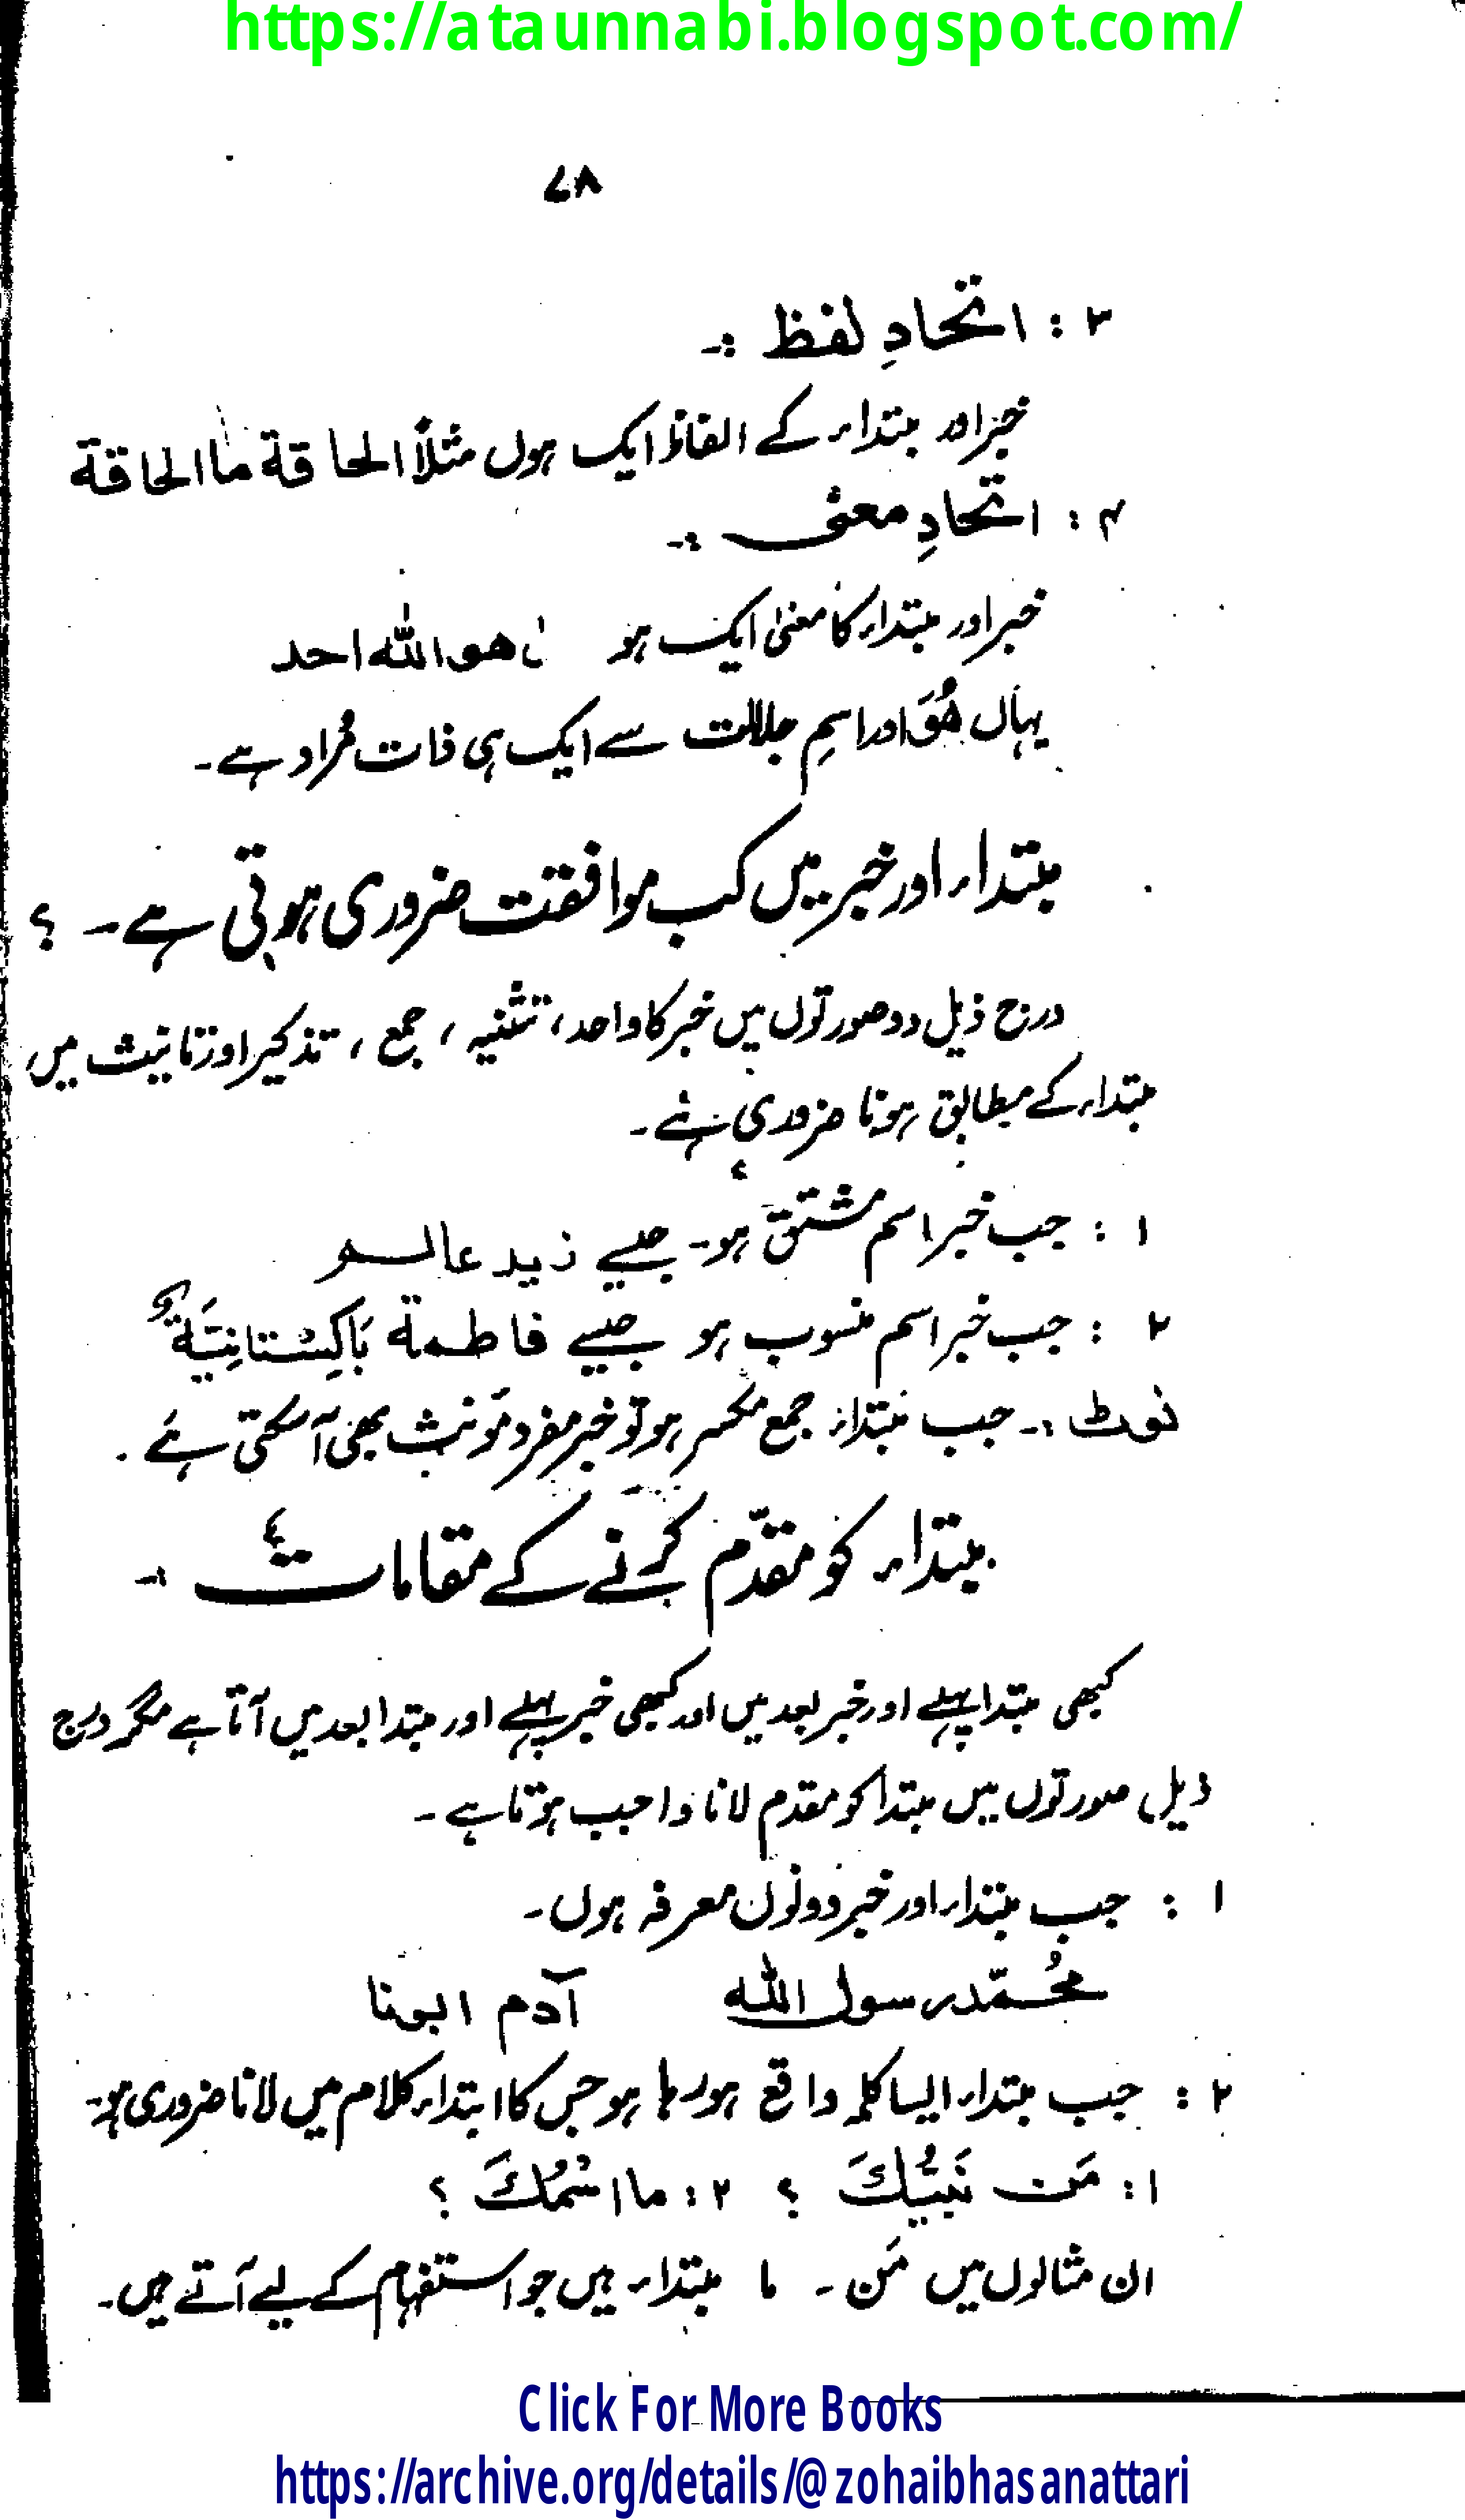 https://ataunnabi.blogspot.com/
۷۸
۳ : اتحادِ لفظ :۔
خبر اور مبتداء کے الفاظ ایک ہوں مثلاً الحاقة ما الحاقة
۴ : اتحادِ معنی :۔
خبر اور مبتداء کا معنیٰ ایک ہو هو الله احد
یہاں ھُوَ اور اسمِ جلالت سے ایک ہی ذات مُراد ہے۔
مبتداء اور خبر میں کب موافقت ضروری ہوتی ہے۔ ؟
درج ذیل دو صورتوں میں خبر کا واحد، تثنیہ ، جمع ، تذکیر اور تانیث میں
مبتداء کے مطابق ہونا ضروری ہے۔
۱ : جب خبر اسم مشتق ہو۔ جیسے زید عالم
۲ : جب خبر اسم منسوب ہو جیسے فاطمة بَاكِسْتَانِيَّةٌ
نوٹ :۔ جب مبتداء جمع مکسر ہو تو خبر مفرد مؤنث بھی آ سکتی ہے۔
مبتداء کو مقدّم کرنے کے مقامات :۔
کبھی مبتدا پہلے اور خبر بعد میں اور کبھی خبر پہلے اور مبتدا بعد میں آتا ہے مگر درج
ذیل صورتوں میں مبتدا کو مقدم لانا واجب ہوتا ہے۔
۱ : جب مبتداء اور خبر دونوں معرفہ ہوں۔
مُحَمّد رسول الله آدم ابونا
۲ : جب مبتداء ایسا کلمہ واقع ہو رہا ہو جس کا ابتداء کلام میں لانا ضروری ہو۔
۱ : مَن نَبِيُّكَ ؟ ۲ : ما اسْمُكَ ؟
ان مثالوں میں مَن ۔ ما مبتداء ہیں جو استفہام کے لیے آتے ہیں۔
Click For More Books
https://archive.org/details/@zohaibhasanattari